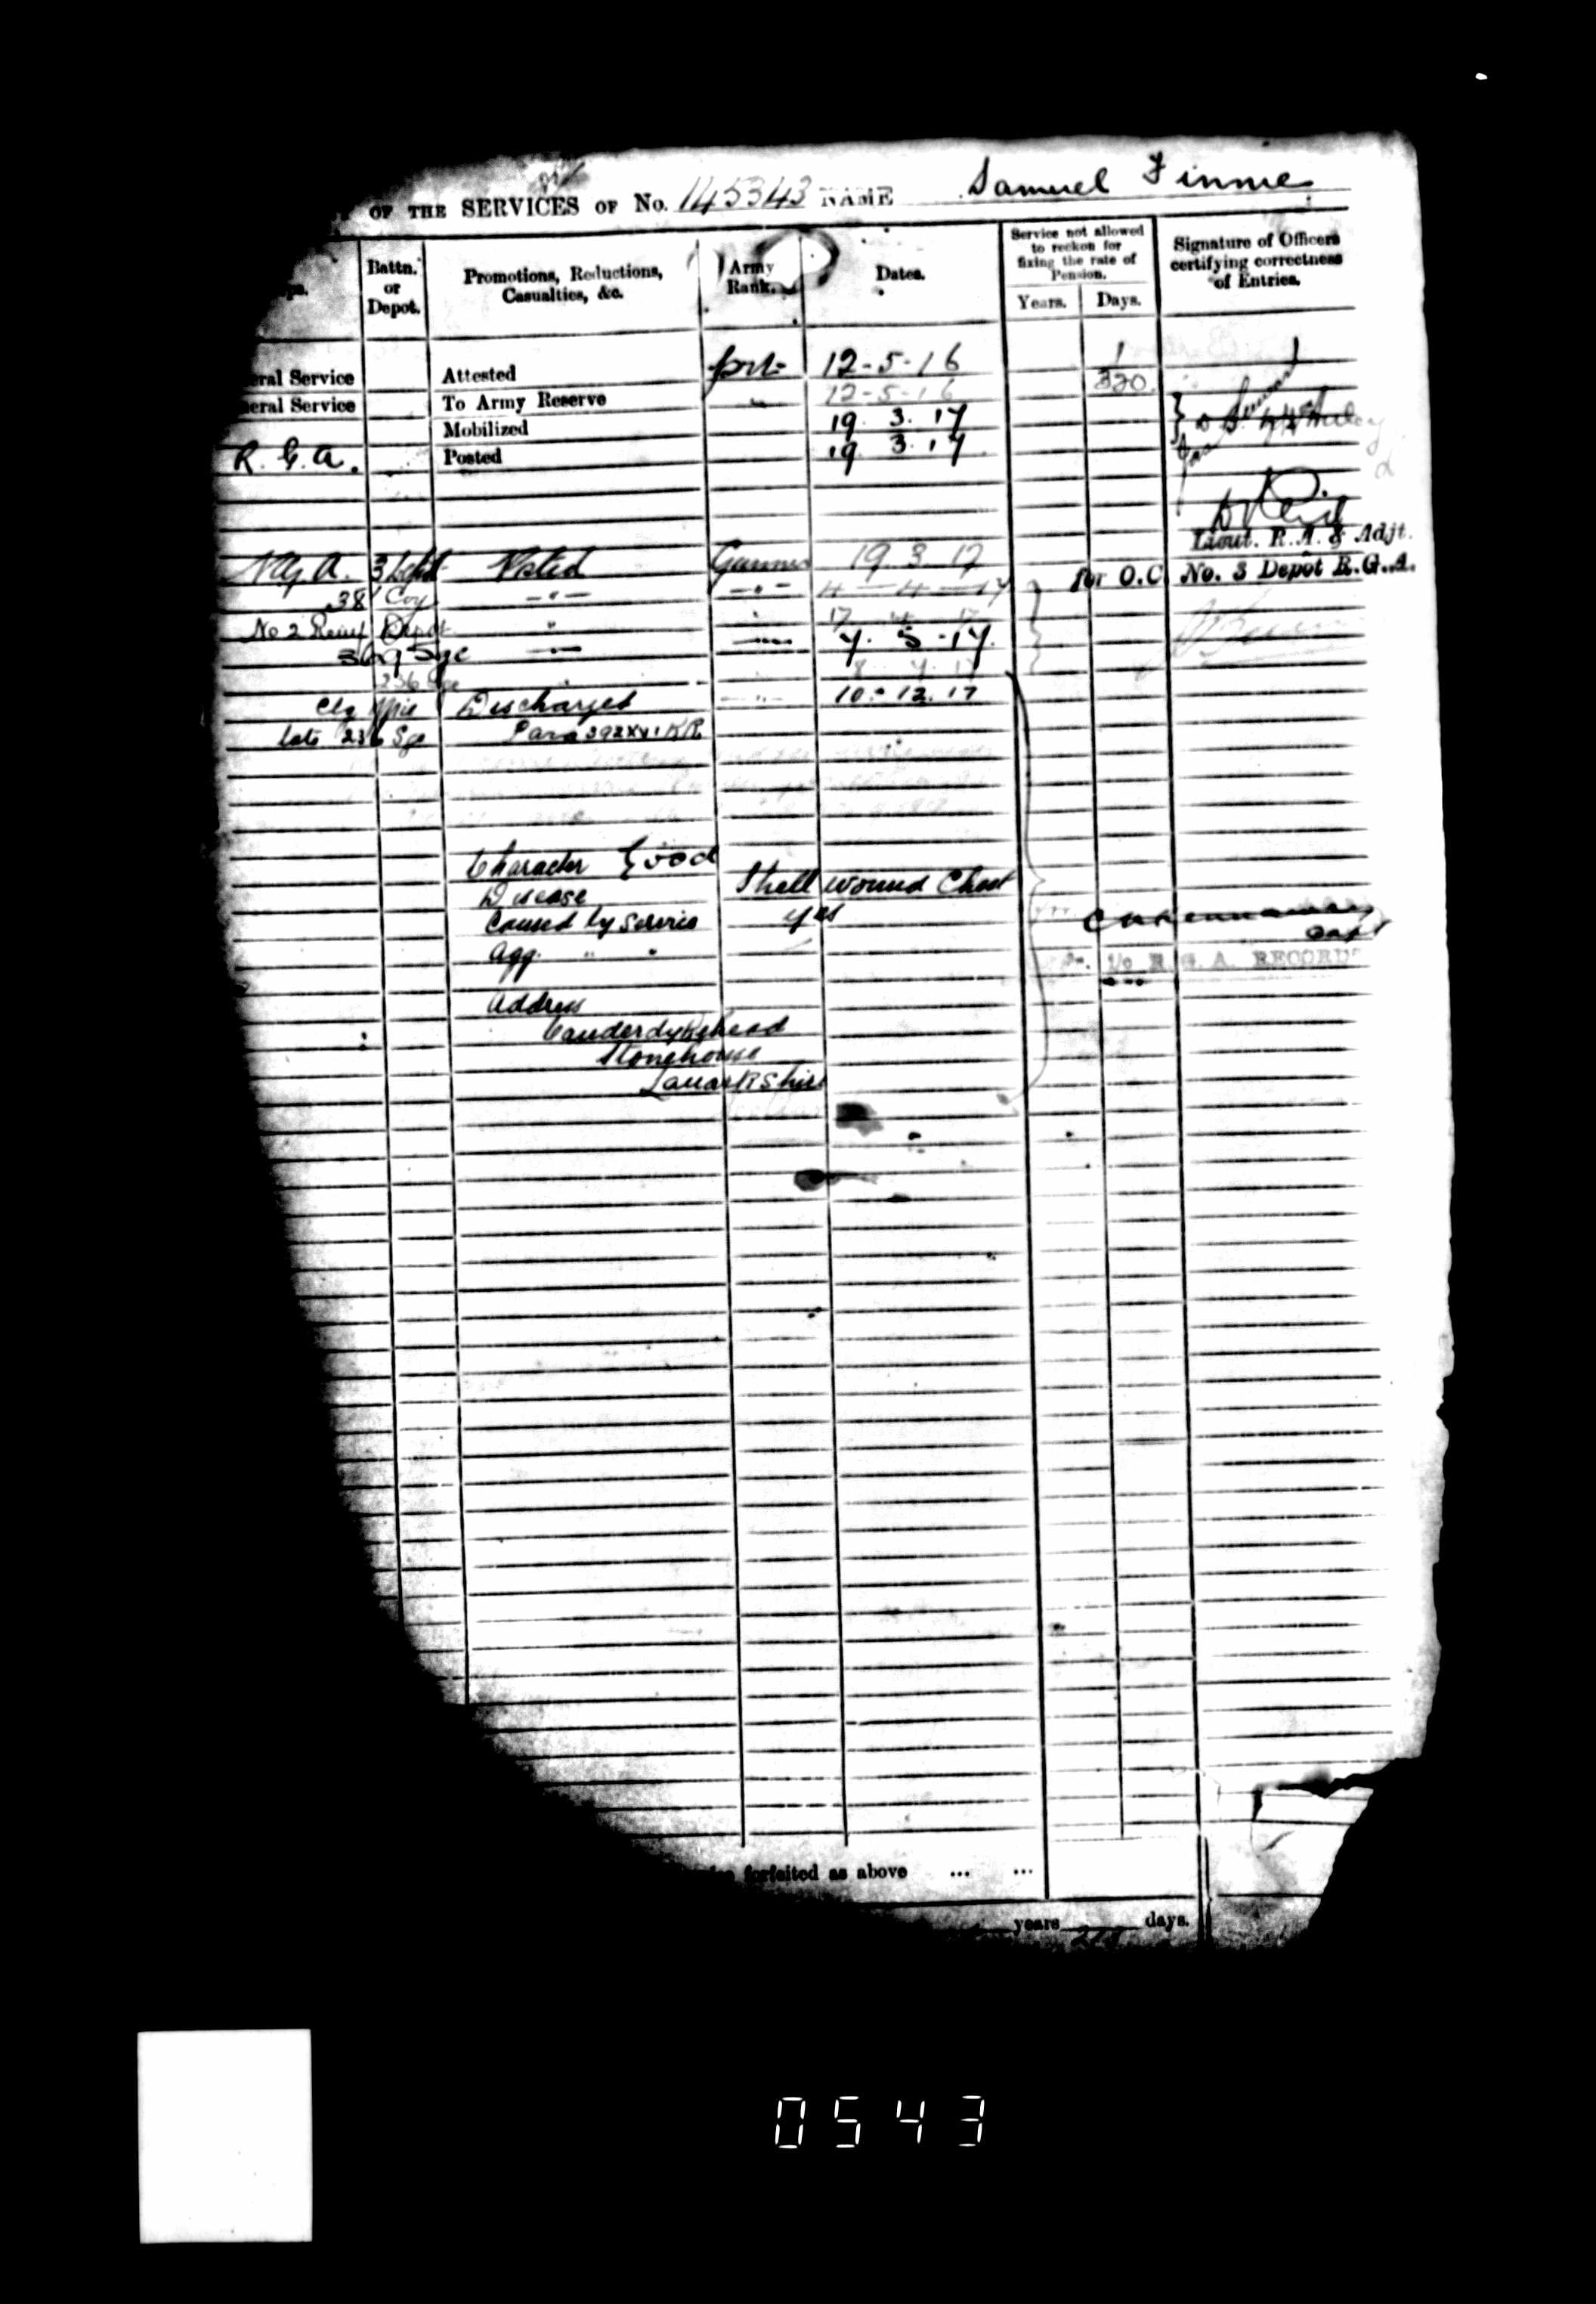 OF THE SERVICES OF No. 145343 NAME Samuel Finnie
Battn. or Depot.
Promotions, Reductions, Casualties, &c.
Army Rank.
Dates.
Service not allowed to reckon for fixing the rate of Pension.
Years. Days.
Signature of Officers certifying correctness of Entries.
eral Service Attested 12-5-16 1
eral Service To Army Reserve 12-5-16 320
Mobilized 19. 3. 17
R. G. A. Posted 19 3. 17
Lieut. R.A. & Adjt.
R.G.A. 3 Depot Posted Gunner 19. 3. 17
for O.C. No. 3 Depot R.G.A.
38 Coy " " 4-4-17
No 2 Reinf Depot " " 17 4 17
369 Sge " " 7. 5. 17.
236 Sge " 8 7 17
Discharged " 10. 12. 17
late 236 Sge Para 392 XVI KR
Character Good
Disease Shell wound Chest
Caused by Service yes
Agg. " "
Capt
I/c R.G.A. RECORDS
Address
Canderdykehead
Stonehouse
Lanarkshire
forfeited as above ... ...
years days.
0543